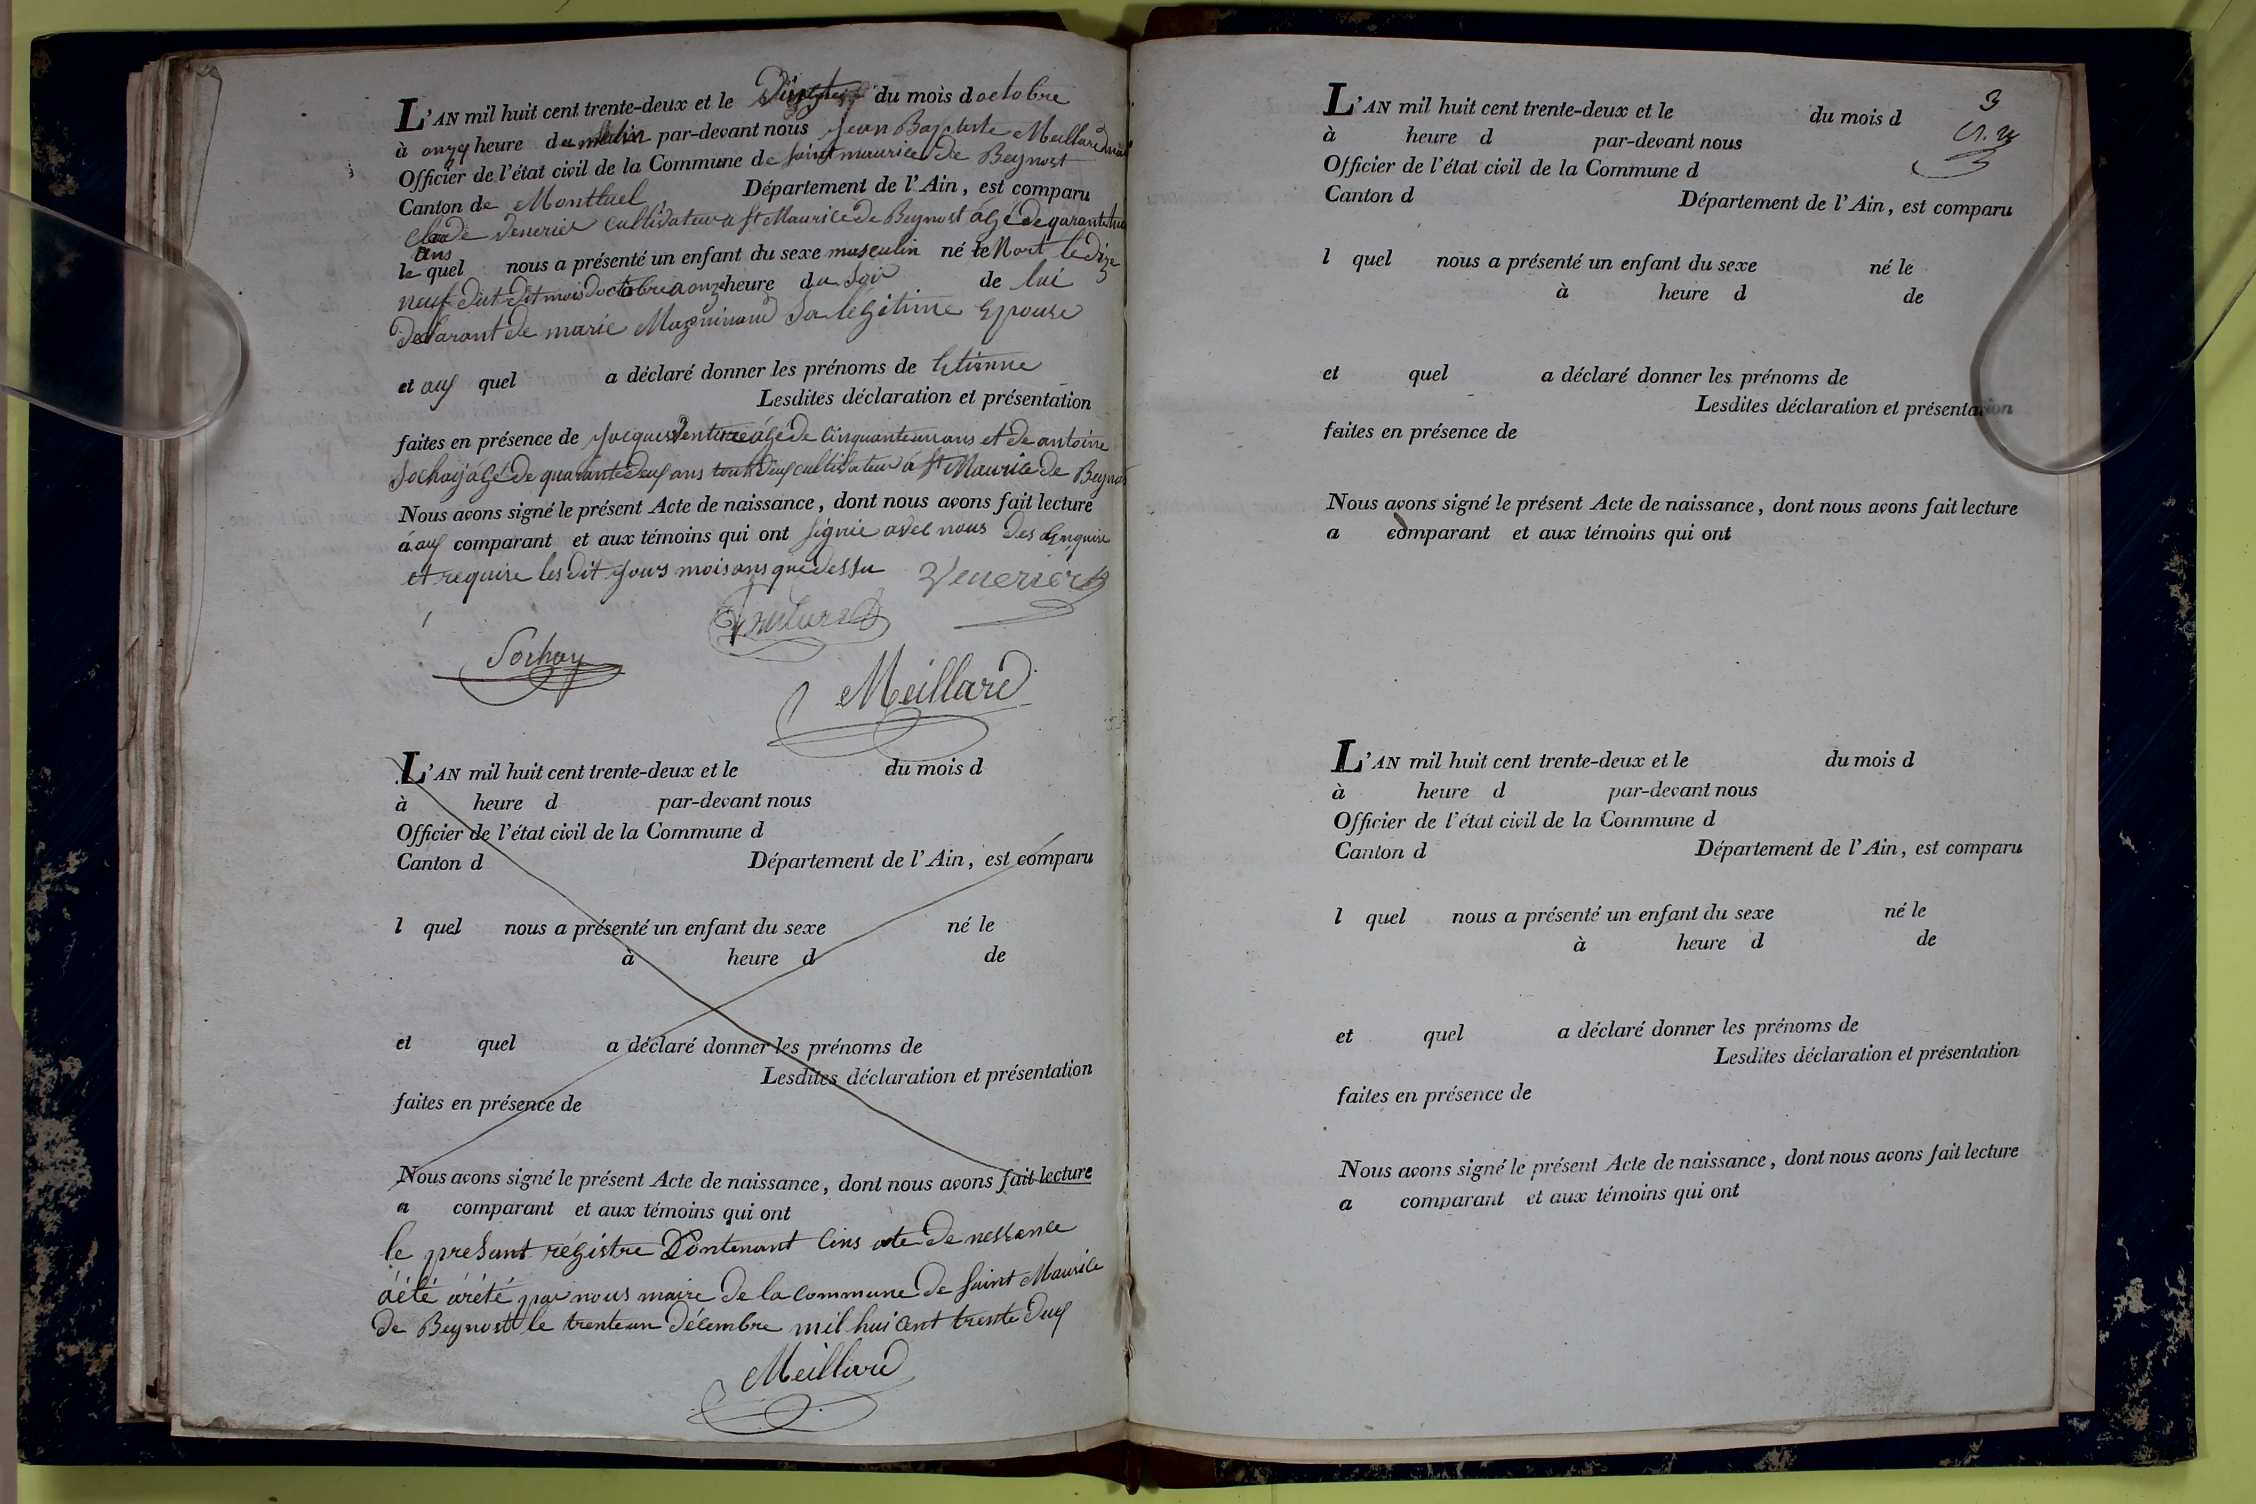 L'AN mil huit cent trente-deux et le du mois doctobre
à onze heure du matin par-devant nous Jean Baptiste Meillard maire
Officier de l'état civil de la Commune de saint maurice de Beynost
Canton de Montluel Département de l'Ain, est comparu
Claude Venerier cultivateur a St Maurice de Beynost agé de garante huit
ans
le quel nous a présenté un enfant du sexe masculin né le Mort le dize
neuf dut dit mois doctobre a onze heure du soir de lui
declarant de marie Magninand Sa legitime Epouse
et auf quel a déclaré donner les prénoms de Etienne
Lesdites déclaration et présentation
faites en présence de Jacques agé de cinquanteun ans et de antoine
Sochay agé de quarante deuf ans tout deuf cultivateur á St Maurice de Beynost
Nous avons signé le présent Acte de naissance, dont nous avons fait lecture
á auf comparant et aux témoins qui ont signie avec nous Des Enquire
et require les dit jours mois ans que dessu Venerier
Sochay
Meillard
L'AN mil huit cent trente-deux et le du mois d
à heure d par-devant nous
Officier de l'état civil de la Commune d
Canton d Département de l'Ain, est comparu
l quel nous a présenté un enfant du sexe né le
à heure d de
et quel a déclaré donner les prénoms de
Lesdites déclaration et présentation
faites en présence de
Nous avons signé le présent Acte de naissance, dont nous avons fait lecture
a comparant et aux témoins qui ont
le presant régistre Contenant Cins acte de nessance
áété áreté par nous maire de la commune de Saint Maurice
de Beynost le trenteun Décembre mil hui cent trente deuf
Meillard
3
L'AN mil huit cent trente-deux et le du mois d
à heure d par-devant nous
Officier de l'état civil de la Commune d
Canton d Département de l'Ain, est comparu
l quel nous a présenté un enfant du sexe né le
à heure d de
et quel a déclaré donner les prénoms de
Lesdites déclaration et présentation
faites en présence de
Nous avons signé le présent Acte de naissance, dont nous avons fait lecture
a comparant et aux témoins qui ont
L'AN mil huit cent trente-deux et le du mois d
à heure d par-devant nous
Officier de l'état civil de la Commune d
Canton d Département de l'Ain, est comparu
l quel nous a présenté un enfant du sexe né le
à heure d de
et quel a déclaré donner les prénoms de
Lesdites déclaration et présentation
faites en présence de
Nous avons signé le présent Acte de naissance, dont nous avons fait lecture
a comparant et aux témoins qui ont